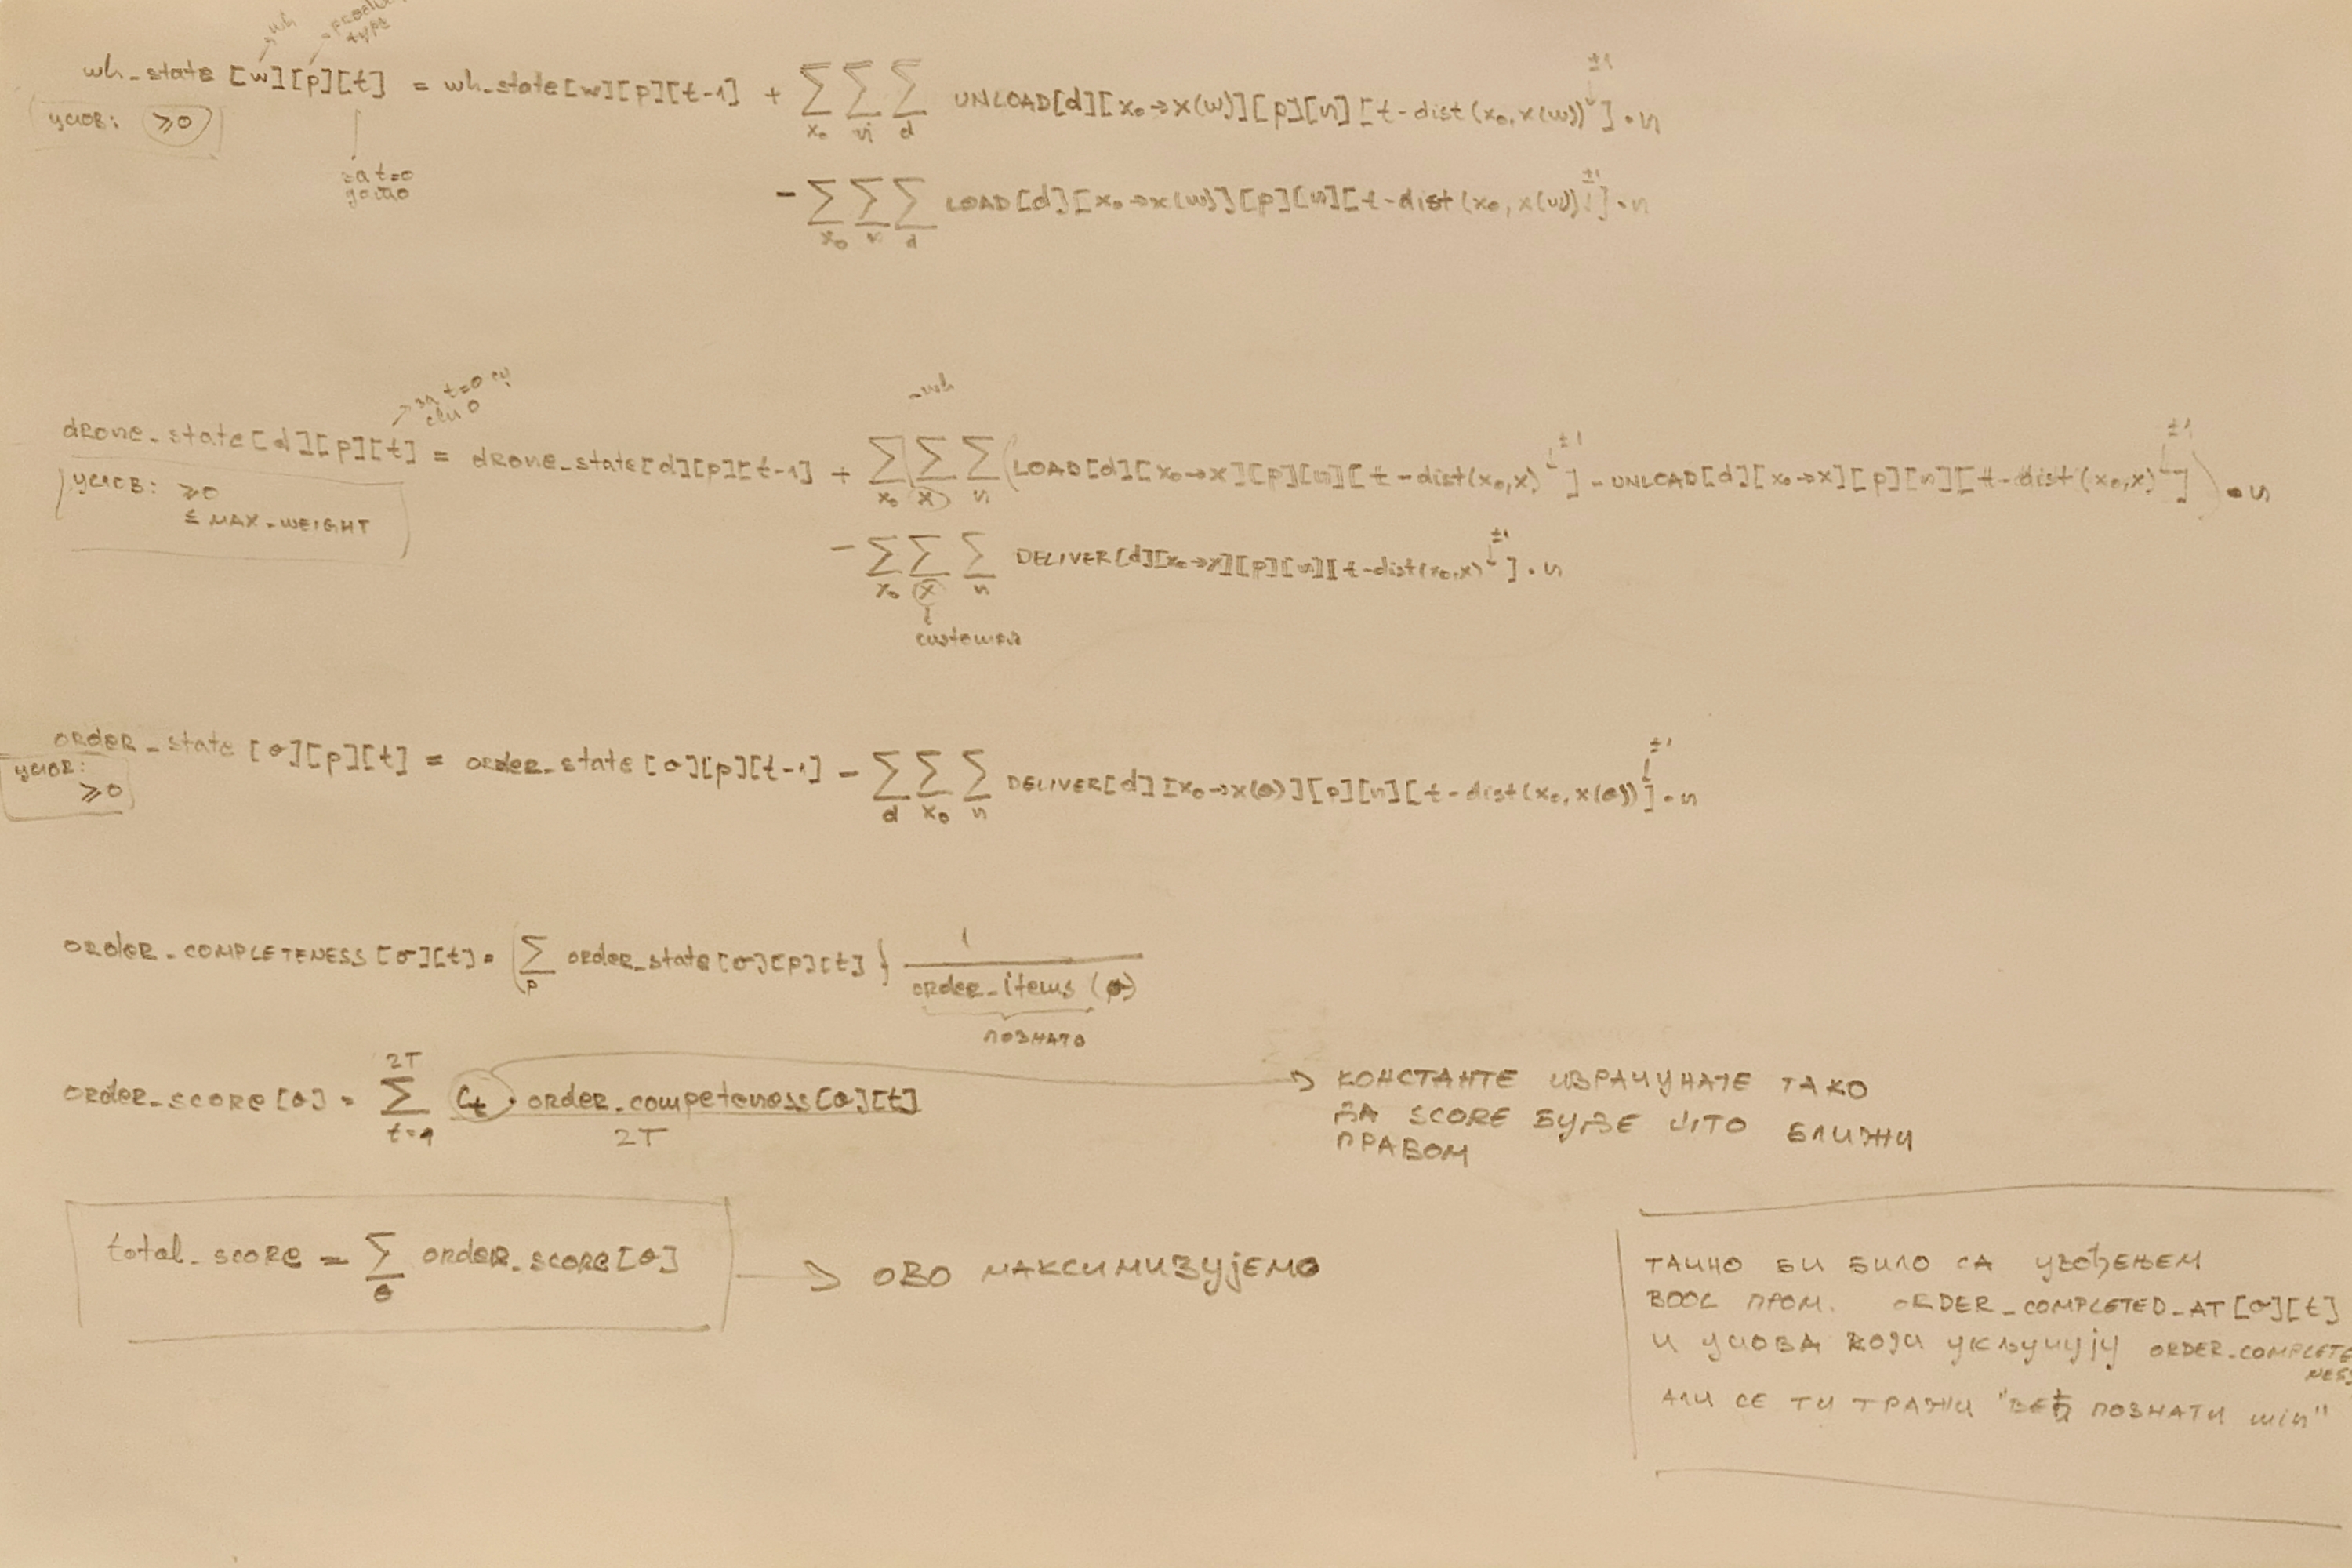 →wh →product type
wh_state [w][p][t] = wh_state[w][p][t-1] + ∑ ∑ ∑ UNLOAD[d][x₀→x(w)][p][n][t-dist(x₀,x(w)) ±1]·n
x₀ n d
услов: ≥0
за t=0
- ∑ ∑ ∑ LOAD[d][x₀→x(w)][p][n][t-dist(x₀,x(w)) ±1]·n
x₀ n d
→ за t=0 су
сви 0
wh
drone_state[d][p][t] = drone_state[d][p][t-1] + ∑ ∑ ∑ (LOAD[d][x₀→x][p][n][t-dist(x₀,x) ±1] - UNLOAD[d][x₀→x][p][n][t-dist(x₀,x) ±1])·n
x₀ x n
услов: ≥0
≤ MAX_WEIGHT
- ∑ ∑ ∑ DELIVER[d][x₀→x][p][n][t-dist(x₀,x) ±1]·n
x₀ x n
customer
order_state [o][p][t] = order_state[o][p][t-1] - ∑ ∑ ∑ DELIVER[d][x₀→x(o)][p][n][t-dist(x₀,x(o)) ±1]·n
d x₀ n
услов:
≥0
order_COMPLETENESS[o][t] = (∑ order_state[o][p][t]) 1
p order_items (o)
ПОЗНАТО
order_score[o] = 2T ∑ t=1 Ct · order_competeness[o][t]
2T
→ КОНСТАНТЕ ИЗРАЧУНАТЕ ТАКО
ДА SCORE БУДЕ ШТО БЛИЖИ
ПРАВОМ
total_score = ∑ order_score[o]
o
→ ОВО МАКСИМИЗУЈЕМО
ТАЧНО БИ БИЛО СА УВОЂЕЊЕМ
BOOL ПРОМ. ORDER_COMPLETED_AT[o][t]
И УСЛОВА КОЈИ УКЉУЧУЈУ ORDER_COMPLETE
NESS
АЛИ СЕ ТИ ТРАЖИ "ВЕЋ ПОЗНАТИ min"